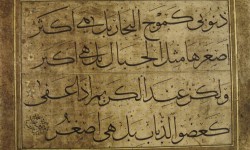 ذنوبي كموج البحار بل هي أكثر
أصغرها مثل الجبال بل هي أكبر
ولكن عند الكريم إذا عفى
كعضو الذباب بل هي أصغر